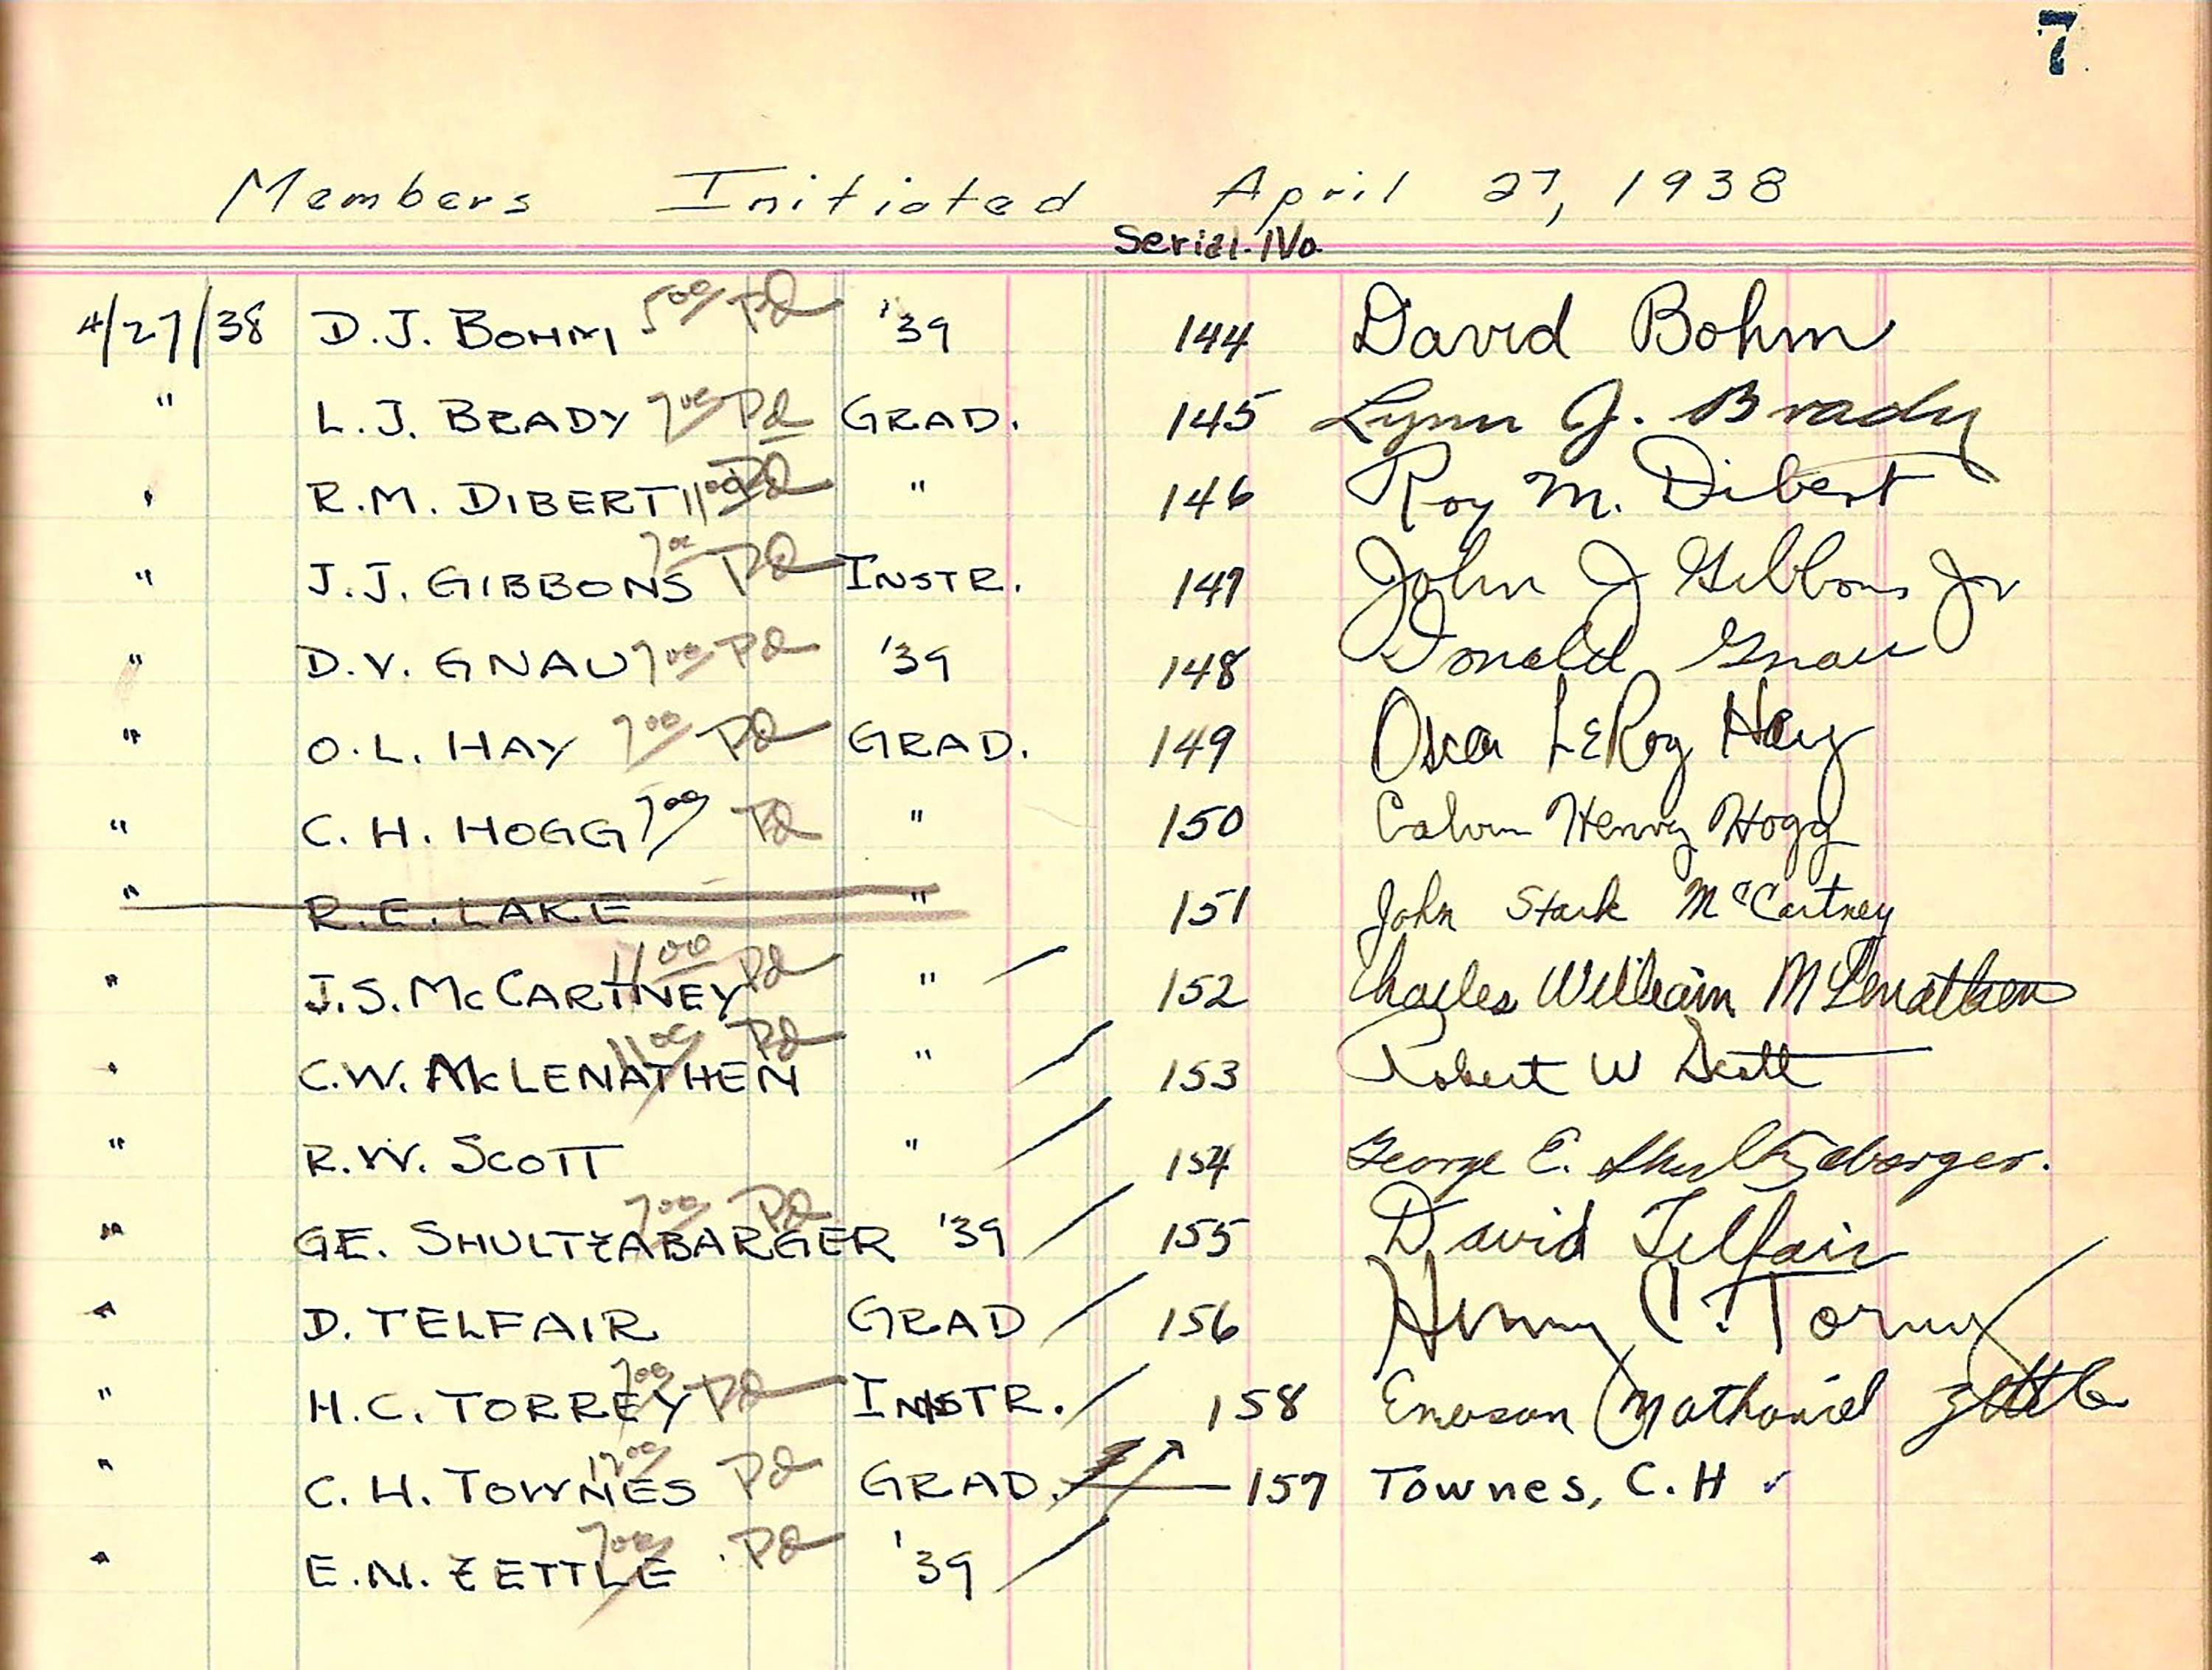 7
Members Initiated April 27, 1938
Serial No.
4/27/38 D.J. BOHM 5 00/ PD '39 144 David Bohm
" L.J. BRADY 7 00/ Pd GRAD. 145 Lynn J. Brady
" R.M. DIBERT 11 00 PD " 146 Roy M. Dibert
" J.J. GIBBONS 7 00 PD INSTR. 147 John J Gibbons Jr
" D.V. GNAU 7 00/ PD '39 148 Donald Gnau
" O.L. HAY 7 00/ PD GRAD. 149 Oscar LeRoy Hay
" C. H. HOGG 7 00/ PD " 150 Calvin Henry Hogg
" R.E. LAKE " 151 John Stark McCartney
" J.S. McCARTNEY 11 00 Pd " 152 Charles William McLenathen
" C.W. McLENATHEN 11 00/ PD " 153 Robert W Scott
" R.W. SCOTT " 154 George E. Shultzabarger.
" GE. SHULTZABARGER 7 00/ PD '39 155 David Telfair
" D. TELFAIR GRAD 156 Henry C. Torrey
" H.C. TORREY 7 00/ PD INSTR. 158 Emerson Nathaniel Zettle
" C. H. TOWNES PD GRAD. 157 Townes, C.H ✓
" E.N. ZETTLE 7 00/ PD '39